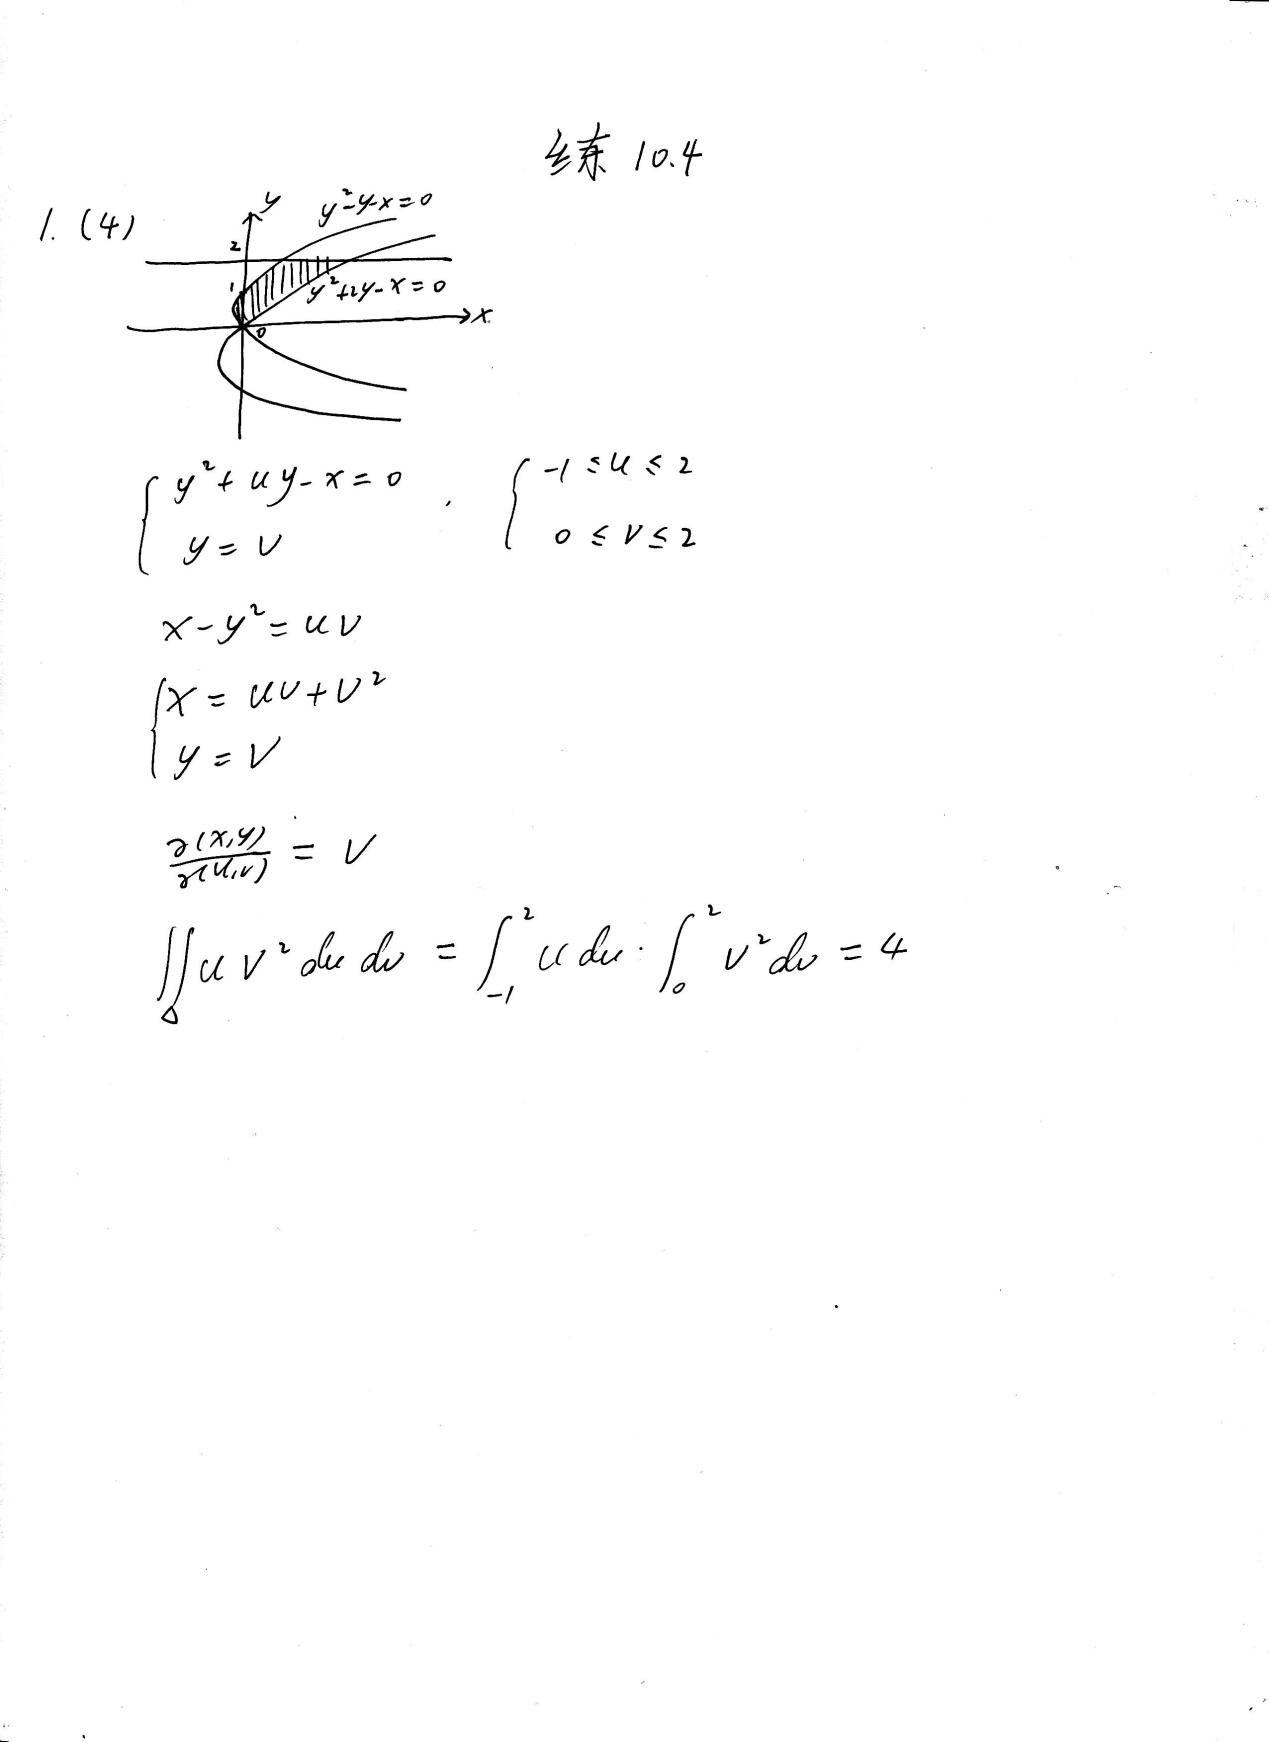 练 10.4
1. (4)
y
y²-y-x=0
2
1
y²+2y-x=0
0
x
{ y²+uy-x=0 , { -1≤u≤2
y=v 0≤v≤2
x-y²=uv
{ x=uv+v²
y=v
∂(x,y)/∂(u,v) = v
∬_Δ u v² du dv = ∫_{-1}^{2} u du · ∫_{0}^{2} v² dv = 4